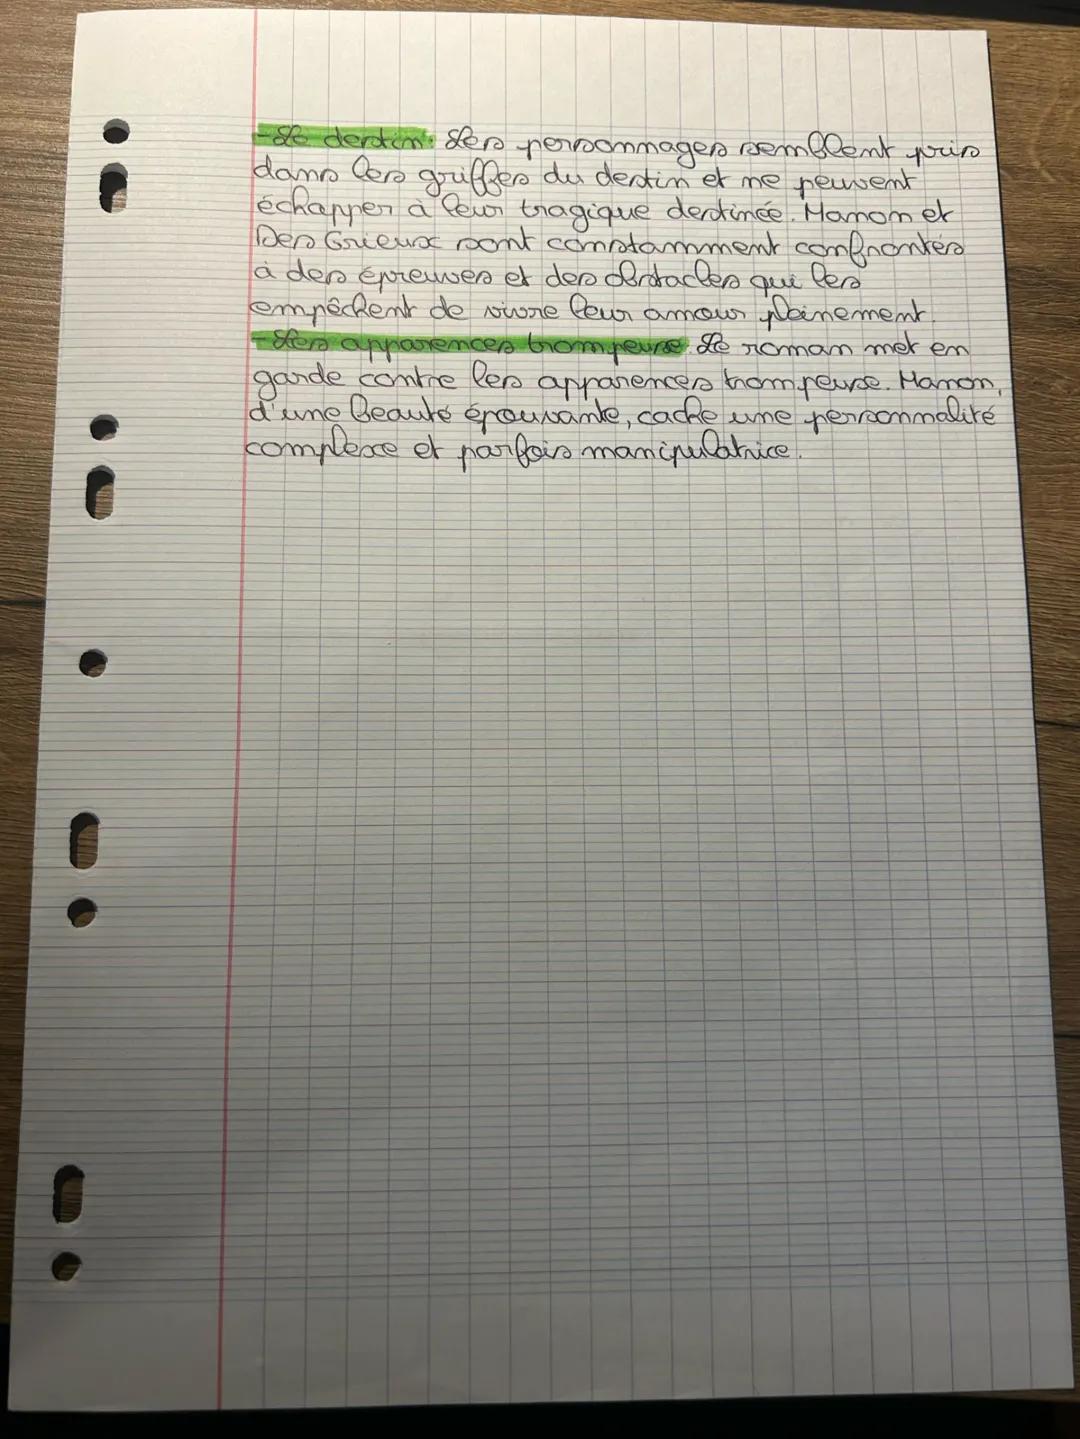 - Le destin: Les personnages semblent pris
dans les griffes du destin et ne peuvent
échapper à leur tragique destinée. Manon et
Des Grieux sont constamment confrontés
à des épreuves et des obstacles qui les
empêchent de vivre leur amour pleinement.
- Les apparences trompeuse. Le roman met en
garde contre les apparences trompeuse. Manon,
d'une beauté épouvante, cache une personnalité
complexe et parfois manipulatrice.